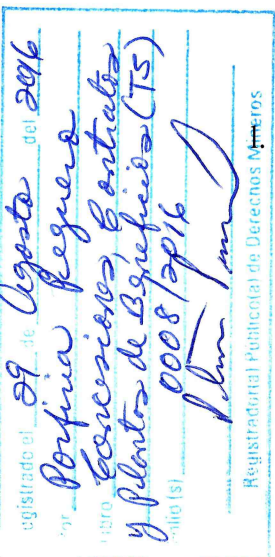 egistrado el 29 de Agosto del 2016
Por Porfiria Reguera
Libro Concesiones, Contratos
y Plantas de Beneficios (T5)
Folio (s) 0008/2016
Registrador(a) Público(a) de Derechos Mineros